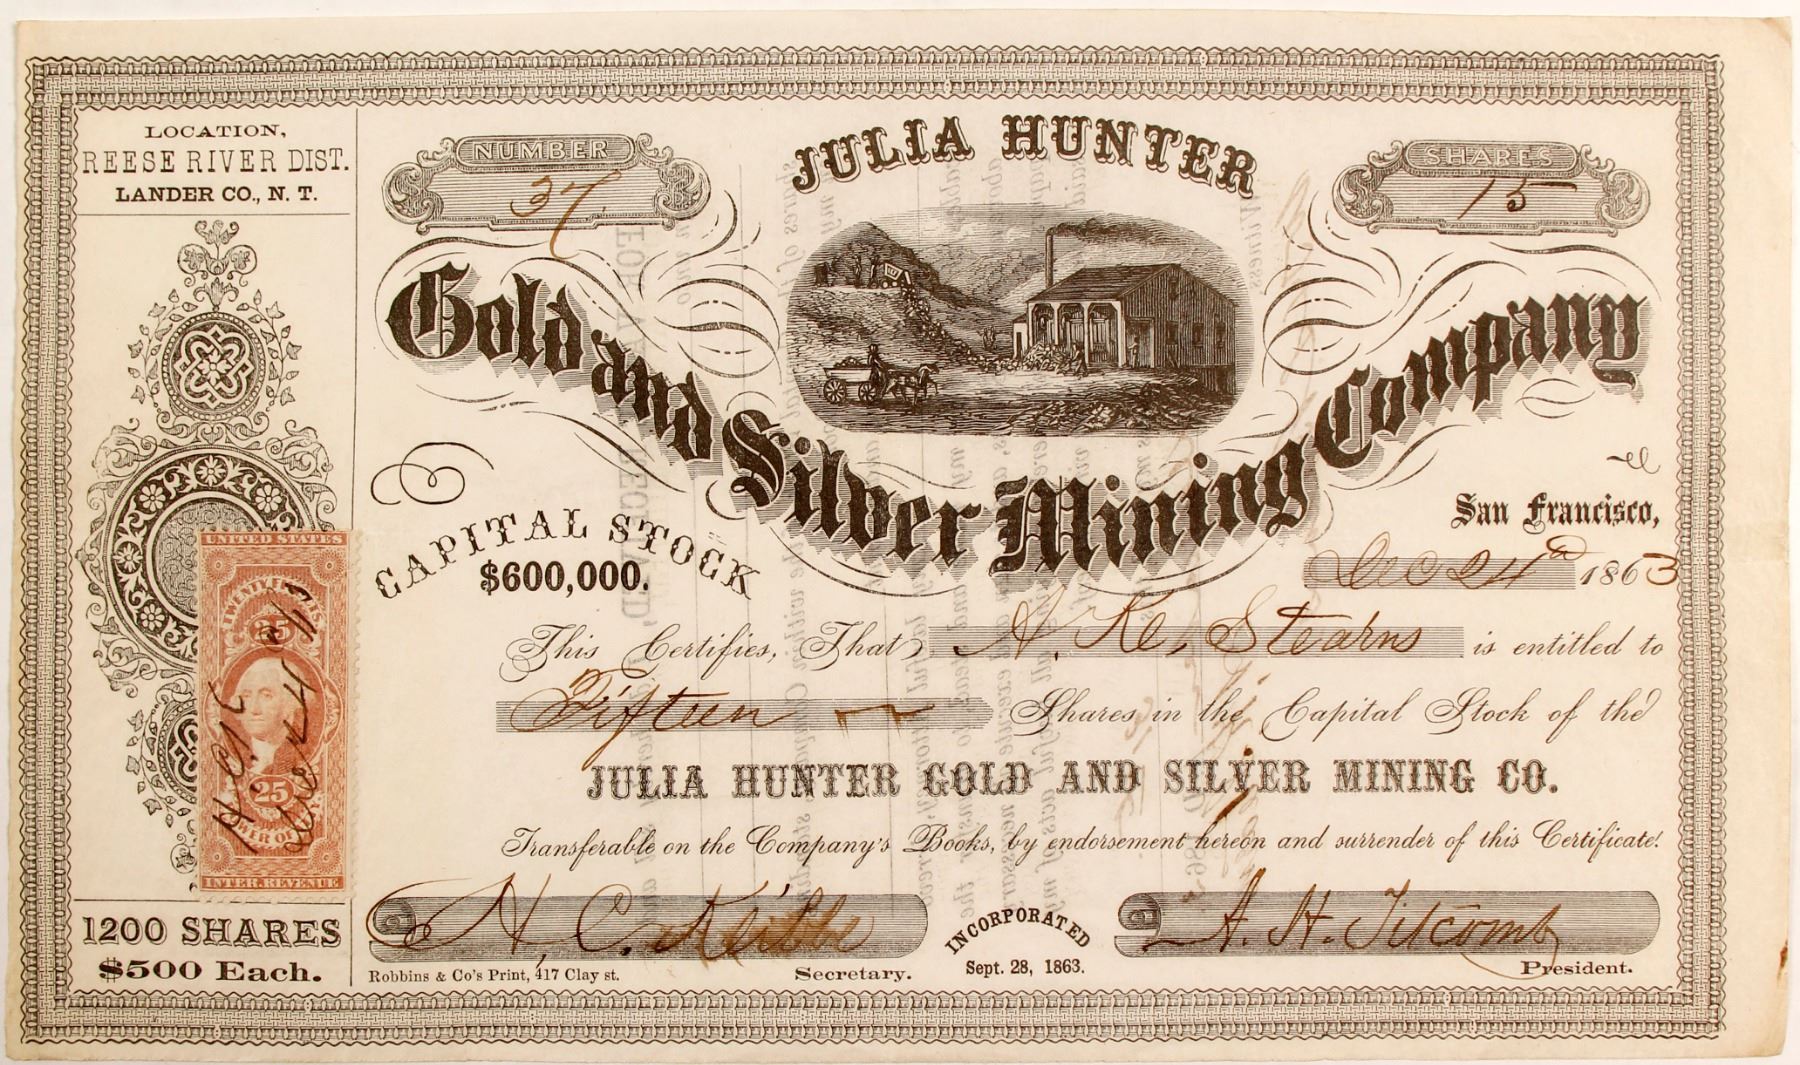 LOCATION,
REESE RIVER DIST.
LANDER CO., N. T.
NUMBER
37.
JULIA HUNTER
SHARES
15
Gold and Silver Mining Company
CAPITAL STOCK
$600,000.
San Francisco,
Dec 24th 1863
This Certifies, That A. K. Stearns is entitled to
Fifteen Shares in the Capital Stock of the
JULIA HUNTER GOLD AND SILVER MINING CO.
Transferable on the Company's Books, by endorsement hereon and surrender of this Certificate.
UNITED STATES
25
25
INTER. REVENUE
H. C. K
Dec 24
1200 SHARES
$500 Each.
H. C. Kibbe
Secretary.
INCORPORATED
Sept. 28, 1863.
A. H. Titcomb
President.
Robbins & Co's Print, 417 Clay st.